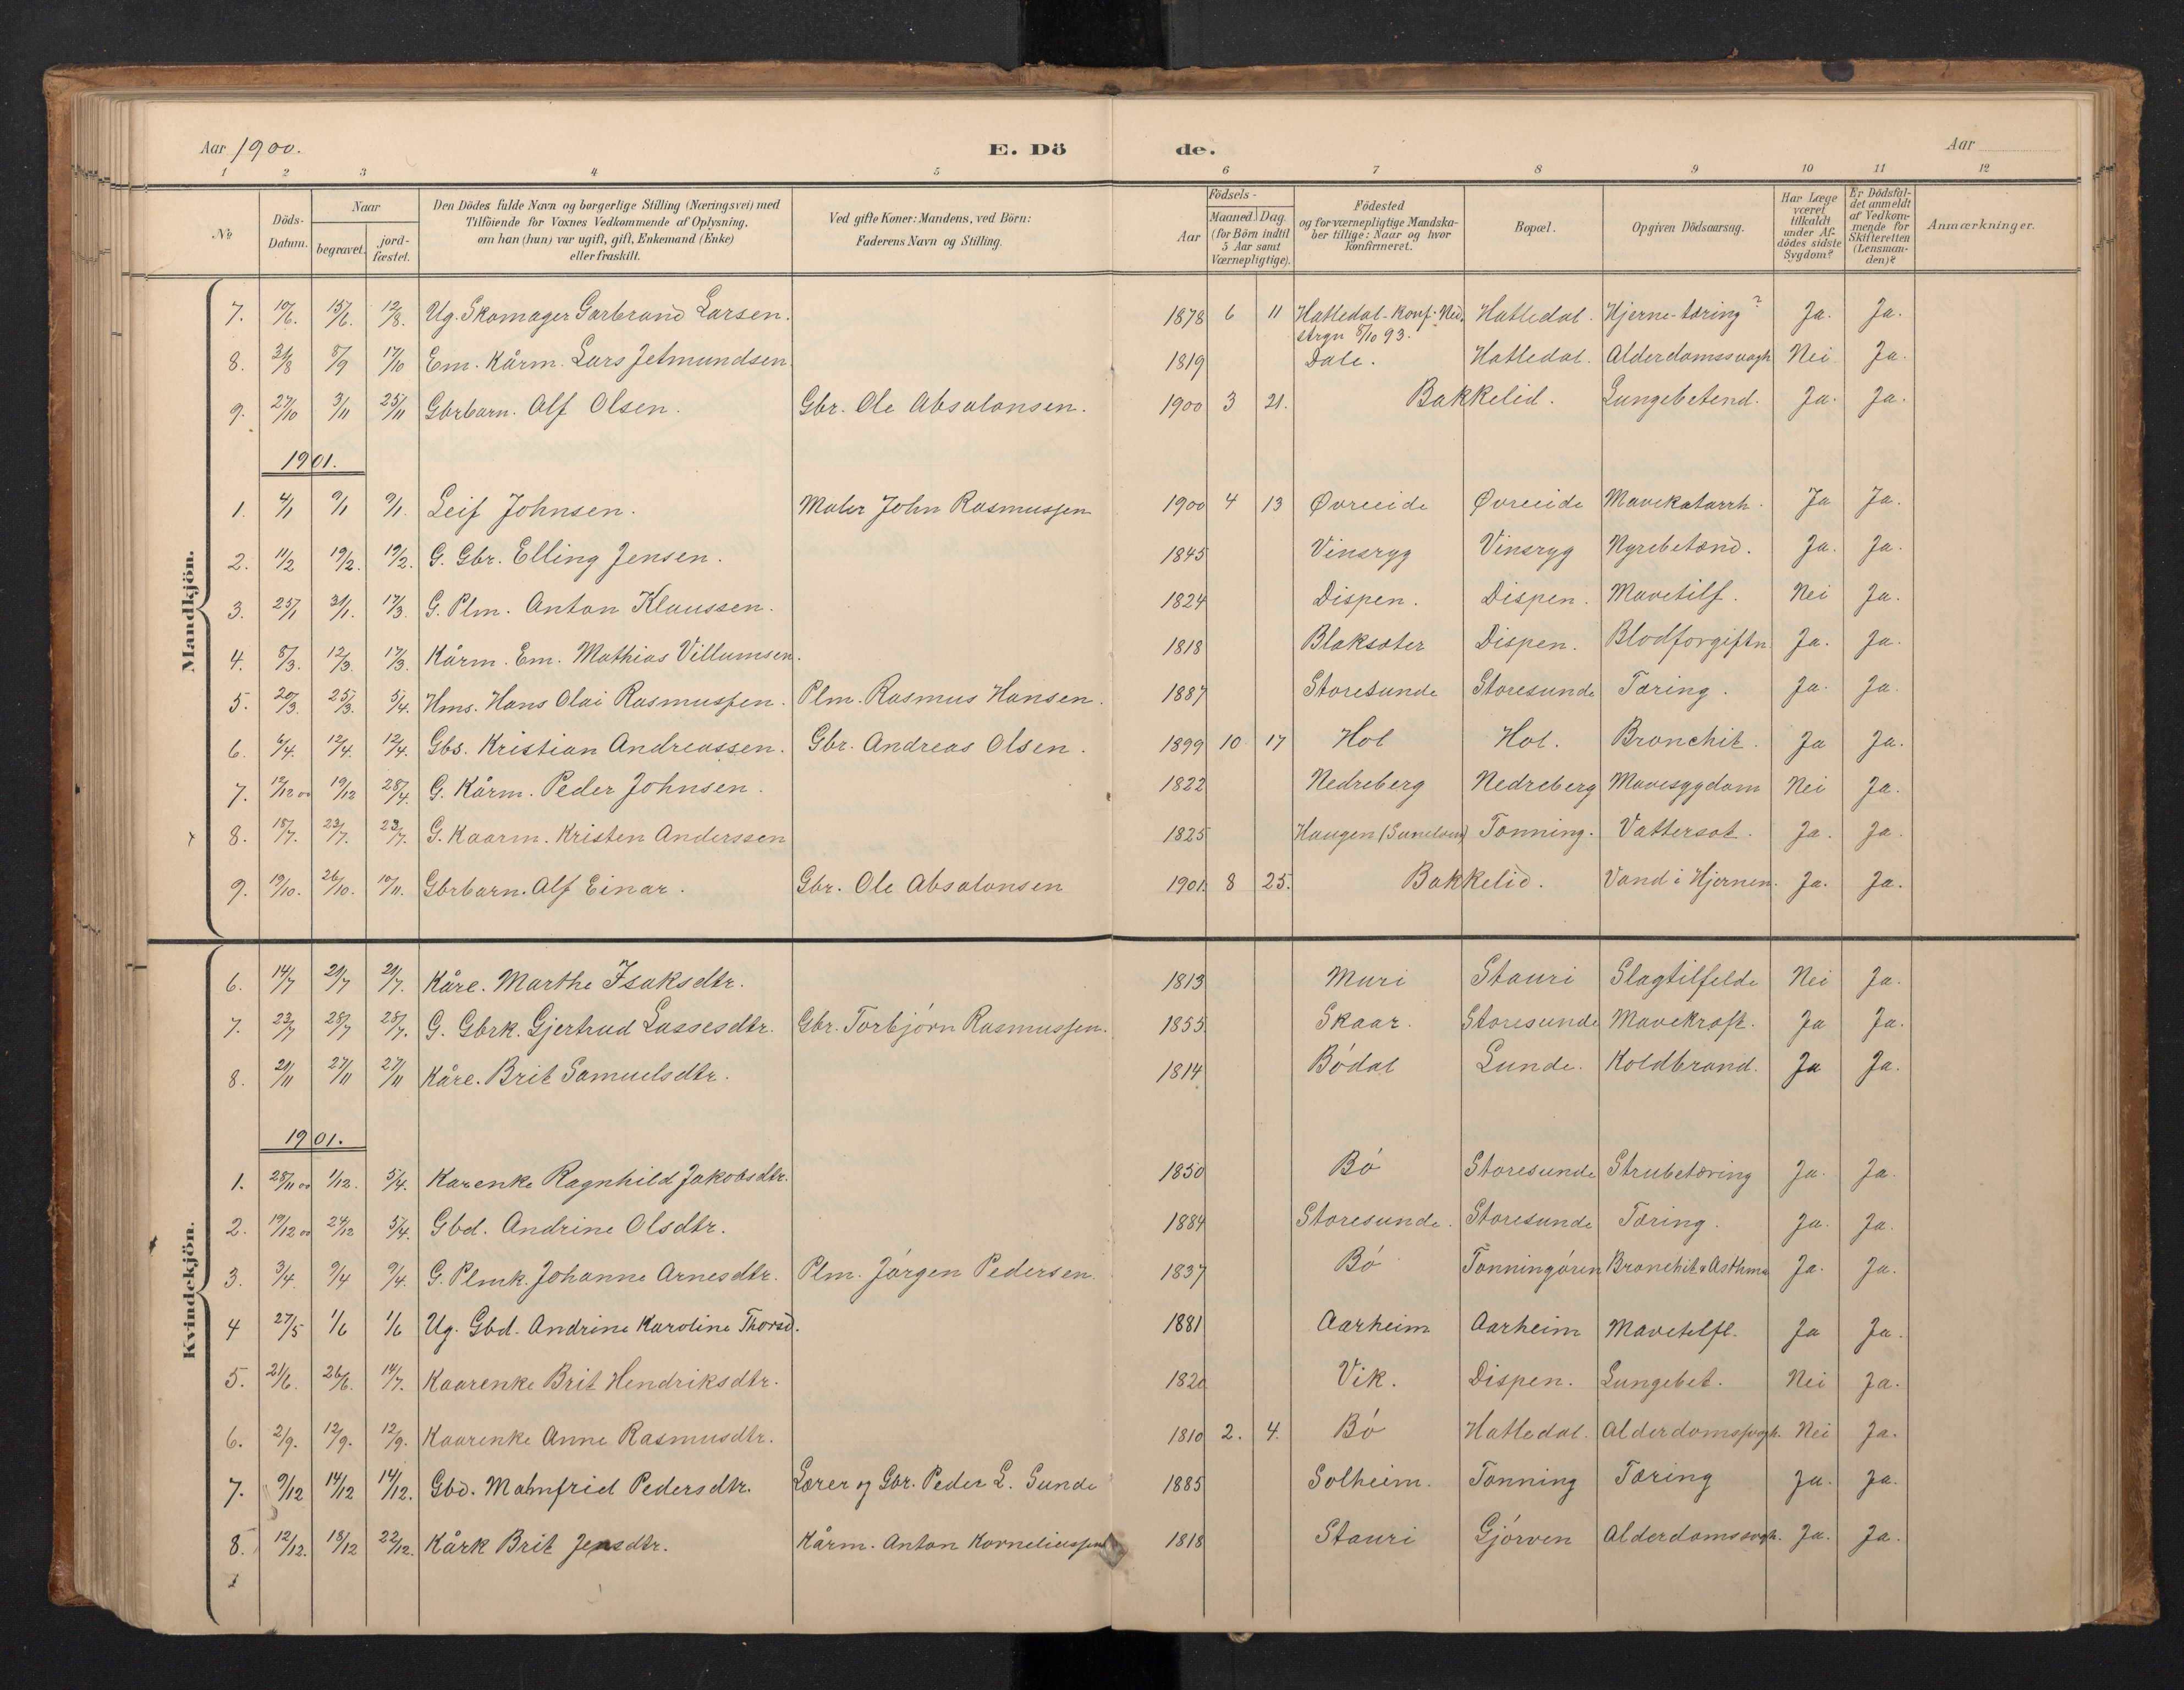 Aar 1900. E. Dö de. Aar
1 2 3 4 5 6 7 8 9 10 11 12
№ Döds-Datum. Naar begravet. jord-fæstet. Den Dödes fulde Navn og borgerlige Stilling (Næringsvei) med Tilföiende for Voxnes Vedkommende af Oplysning, om han (hun) var ugift, gift, Enkemand (Enke) eller fraskilt. Ved gifte Koner: Mandens, ved Börn: Faderens Navn og Stilling. Födsels- Aar Maaned Dag. (for Börn indtil 5 Aar samt Værnepligtige). Födested og for værnepligtige Mandskaber tillige: Naar og hvor Konfirmeret. Bopæl. Opgiven Dödsaarsag. Har Læge været tilkaldt under Afdödes sidste Sygdom? Er Dödsfaldet anmeldt af Vedkommende for Skifteretten (Lensmanden)? Anmærkninger.
Mandkjön.
7. 10/6. 15/6. 12/8. Ug. Skomager Garbrand Larsen. 1878 6 11 Hatledal - Konf. Ned. Hatledal. Hjerne-tæring? Ja. Ja.
strgn 8/10 93.
8. 31/8 8/9 17/10 Em. Kårm. Lars Jetmundsen 1819 Dale. Hatledal. Alderdomssvagh Nei Ja.
9. 27/10 3/11 25/11 Gbrbarn. Alf Olsen. Gbr. Ole Absalonsen. 1900 3 21. Bakkelid. Lungebetend. Ja. Ja.
1901.
1. 4/1 9/1 9/1. Leif Johnsen. Maler John Rasmussen 1900 4 13 Øvreeide Øvreeide Mavekatarrh. Ja Ja.
2. 11/2 19/2. 19/2. G. Gbr. Elling Jensen. 1845 Vinsryg Vinsryg Nyrebetænd. Ja. Ja.
3. 25/1 31/1. 17/3. G. Plm. Anton Klaussen. 1824 Dispen. Dispen. Mavetilf. Nei Ja.
4. 8/3. 12/3. 17/3. Kårm. Em. Mathias Villumsen. 1818 Blaksæter Dispen. Blodforgiftn. Ja. Ja.
5. 20/3. 25/3. 5/4. Hms. Hans Olai Rasmussen. Plm. Rasmus Hansen. 1887 Storesunde Storesunde Tæring. Ja. Ja.
6. 6/4. 12/4. 12/4. Gbs. Kristian Andreassen. Gbr. Andreas Olsen. 1899 10 17 Hol Hol. Bronchit. Ja Ja.
7. 12/12 00 19/12 28/4. G. Kårm. Peder Johnsen. 1822 Nedreberg Nedreberg Mavesygdom Nei Ja.
8. 18/7. 23/7. 23/7. G. Kaarm. Kristen Anderssen 1825 Haugen Tonning. Vattersot. Ja. Ja.
9. 19/10. 26/10. 10/11. Gbrbarn. Alf Einar. Gbr. Ole Absalonsen 1901. 8 25. Bakkelid. Vand i Hjernen. Ja. Ja.
Kvindekjön.
6. 14/7 21/7 21/7. Kåre. Marthe Isaksdtr. 1813 Muri Stauri Slagtilfelde Nei Ja.
7. 23/7 28/7 28/7. G. Gbrk. Gjertrud Lassesdtr. Gbr. Torbjørn Rasmussen. 1855 Skaar. Storesunde Mavekræft. Ja Ja.
8. 21/11 27/11 27/11 Kåre. Brit Samuelsdtr. 1814 Bødal Sunde. Koldbrand. Ja Ja.
1901.
1. 28/11 00 1/12. 5/4. Karenke Ragnhild Jakobsdtr. 1850 Bø Storesunde Strubetæring Ja. Ja.
2. 19/12 00 24/12 5/4. Gbd. Andrine Olsdtr. 1884 Storesunde. Storesunde Tæring. Ja. Ja.
3. 3/4. 9/4 9/4. G. Plmk. Johanne Arnesdtr. Plm. Jørgen Pedersen. 1837 Bø Tonningøren Bronchit & Asthma Ja. Ja.
4 27/5 1/6 1/6 Ug. Gbd. Andrine Karoline Thorsd. 1881 Aarheim Aarheim Mavetilfl. Ja Ja.
5. 21/6. 26/6. 14/7. Kaarenke Brit Hendriksdtr. 1820 Vik. Dispen. Lungebet. Nei Ja.
6. 2/9. 12/9. 12/9. Kaarenke Anne Rasmusdtr. 1810 2. 4. Bø Hatledal. Alderdomssvgh. Nei Ja.
7. 9/12 14/12 14/12. Gbd. Malmfrid Pedersdtr. Lærer og Gbr. Peder L. Sunde 1885 Solheim. Tonning Tæring Ja. Ja.
8. 12/12. 18/12 22/12. Kårk Brit Jensdtr. Kårm. Anton Korneliussen 1818 Stauri Gjørven Alderdomssvgh. Ja. Ja.